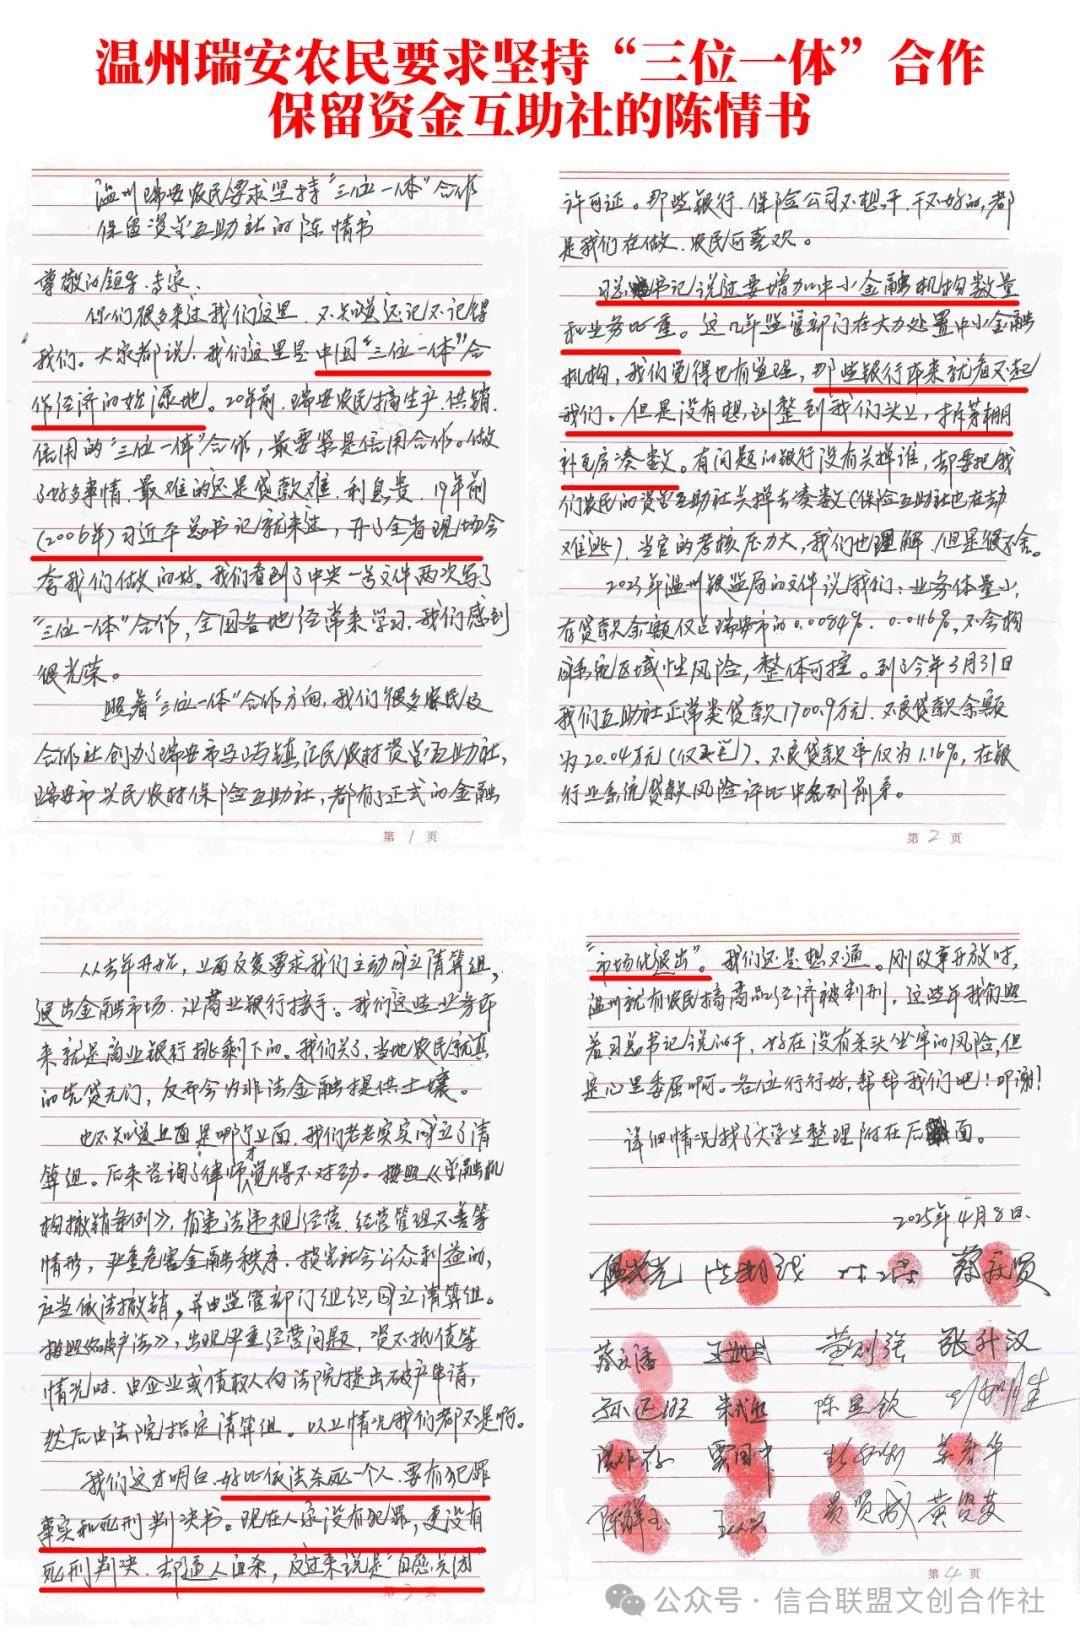 温州瑞安农民要求坚持“三位一体”合作
保留资金互助社的陈情书
温州瑞安农民要求坚持“三位一体”合作
保留资金互助社的陈情书
尊敬的领导、专家、
你们很多来过我们这里，不知道还记不记得
我们。大家都说，我们这里是中国“三位一体”合
作经济的始源地。20年前，瑞安农民搞生产、供销、
信用的“三位一体”合作，最要紧是信用合作。做
了好多事情，最难的还是贷款难、利息贵。19年前
（2006年）习近平总书记就来过，开了全省现场会
夸我们做的好。我们看到了中央一号文件两次写了
“三位一体”合作，全国各地经常来学习，我们感到
很光荣。
照着“三位一体”合作方向，我们很多农民及
合作社创办了瑞安市马屿镇汇民农村资金互助社，
瑞安市兴民农村保险互助社，都有正式的金融
第1页
许可证。那些银行、保险公司不想干、干不好的，都
是我们在做，农民可喜欢。
习总书记说过要增加中小金融机构数量
和业务比重。这几年监管部门在大力处置中小金融
机构，我们觉得也有道理，那些银行本来就看不起
我们。但是没有想到整到我们头上，拆茅棚
补瓦房凑数。有问题的银行没有关掉谁，却要把我
们农民的资金互助社关掉去凑数（保险互助社也在劫
难逃），当官的考核压力大，我们也理解，但是很不舍。
2023年温州银监局的文件说我们：业务体量小，
存贷款余额仅占瑞安市的0.0084%、0.0116%，不会构
成系统区域性风险，整体可控。到了今年3月31日
我们互助社正常类贷款1700.9万元，不良贷款余额
为20.04万元（仅　），不良贷款率仅为1.16%，在银
行业系统贷款风险评比中名列前茅。
第2页
从去年开始，上面反复要求我们主动成立清算组，
退出金融市场，让商业银行接手。我们这些业务本
来就是商业银行挑剩下的。我们关了，当地农民就真
的告贷无门，反而会为非法金融提供土壤。
也不知道上面是哪个上面，我们老老实实成立了清
算组。后来咨询了律师，才觉得不对劲。按照《金融机
构撤销条例》，有违法违规经营、经营管理不善等
情形，严重危害金融秩序、损害社会公众利益的，
应当依法撤销，并由监管部门组织成立清算组。
按照《破产法》，出现严重经营问题，资不抵债等
情况时，由企业或债权人向法院提出破产申请，
然后由法院指定清算组。以上情况我们都不是啊。
我们这才明白，好比依法杀死一个人，要有犯罪
事实和死刑判决书。现在人家没有犯罪，更没有
死刑判决，却逼人自杀，反过来说是“自愿关闭
第3页
“市场化退出”。我们还是想不通。刚改革开放时，
温州就有农民搞商品经济被判刑，这些年我们照
着习总书记说的干，好在没有杀头坐牢的风险，但
是心里委屈啊。各位行行好，帮帮我们吧！叩谢！
详细情况找了大学生整理附在后面。
2025年4月8日
蔡庆贤
张升汉
陈显钦
黄贤成
第4页
公众号·信合联盟文创合作社